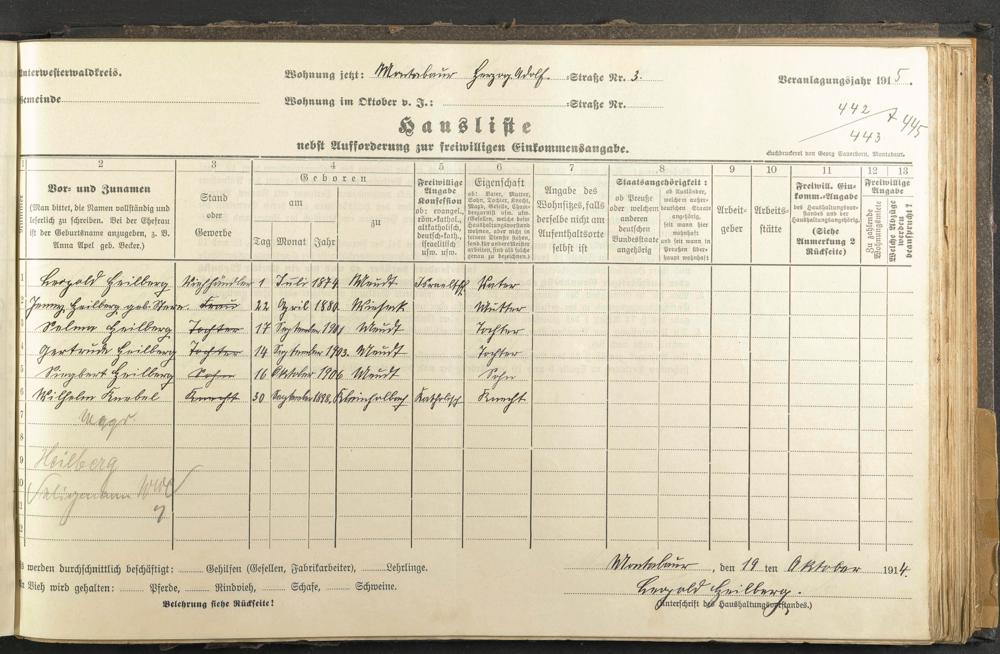 Unterwesterwaldkreis.
Wohnung jetzt: Montabaur Herzog Adolf-Straße Nr. 3.
Veranlagungsjahr 1915.
Gemeinde
Wohnung im Oktober v. J.: -Straße Nr.
442
443
445
Hausliste
nebst Aufforderung zur freiwilligen Einkommensangabe.
Buchdruckerei von Georg Sauerborn, Montabaur.
1 2 3 4 5 6 7 8 9 10 11 12 13
Nummer
Vor- und Zunamen
(Man bittet, die Namen vollständig und
leserlich zu schreiben. Bei der Ehefrau
ist der Geburtsname anzugeben, z. B.
Anna Apel geb. Becker.)
Stand
oder
Gewerbe
Geboren
am
zu
Tag Monat Jahr
Freiwillige
Angabe
Konfession
ob: evangel.,
röm.-kathol.,
altkatholisch,
deutsch-kath.,
israelitisch
usw. usw.
Eigenschaft
ob: Vater, Mutter,
Sohn, Tochter, Knecht,
Magd, Geselle,
usw.
Angabe des
Wohnsitzes, falls
derselbe nicht am
Aufenthaltsorte
selbst ist
Staatsangehörigkeit:
ob Preuße
oder welchem
anderen
deutschen
Bundesstaate
angehörig
ob Ausländer,
welchem außer-
deutschen Staate
angehörig,
seit wann hier
wohnhaft
und seit wann in
Preußen über-
haupt wohnhaft
Arbeit-
geber
Arbeits-
stätte
Freiwill. Ein-
komm.-Angabe
des Haushaltungsvor-
standes und der
Haushaltungsangehörig.
(Siehe
Anmerkung 2
Rückseite)
Freiwillige
Angabe
Zu zahlende
Wohnungsmiete
Welche Abzüge
werden
beansprucht?
1 Leopold Heilberg Viehhändler 1 Juli 1874 Maudt Israelitsch Vater
2 Jenny Heilberg geb. Stern. Frau 22 April 1880. Mutter
3 Selma Heilberg Tochter 17 September 1901 Maudt Tochter
4 Gertrude Heilberg Tochter 14 September 1903. Maudt Tochter
5 Siegbert Heilberg Sohn 16 Oktober 1906 Maudt Sohn
6 Wilhelm Knebel Knecht 30 September 1898. Kleinholbach Katholisch Knecht
7
8
9 Heilberg
10
11
12
Es werden durchschnittlich beschäftigt: Gehilfen (Gesellen, Fabrikarbeiter), Lehrlinge.
An Vieh wird gehalten: Pferde, Rindvieh, Schafe, Schweine.
Belehrung siehe Rückseite!
Montabaur, den 19 ten Oktober 1914.
Leopold Heilberg.
(Unterschrift des Haushaltungsvorstandes.)